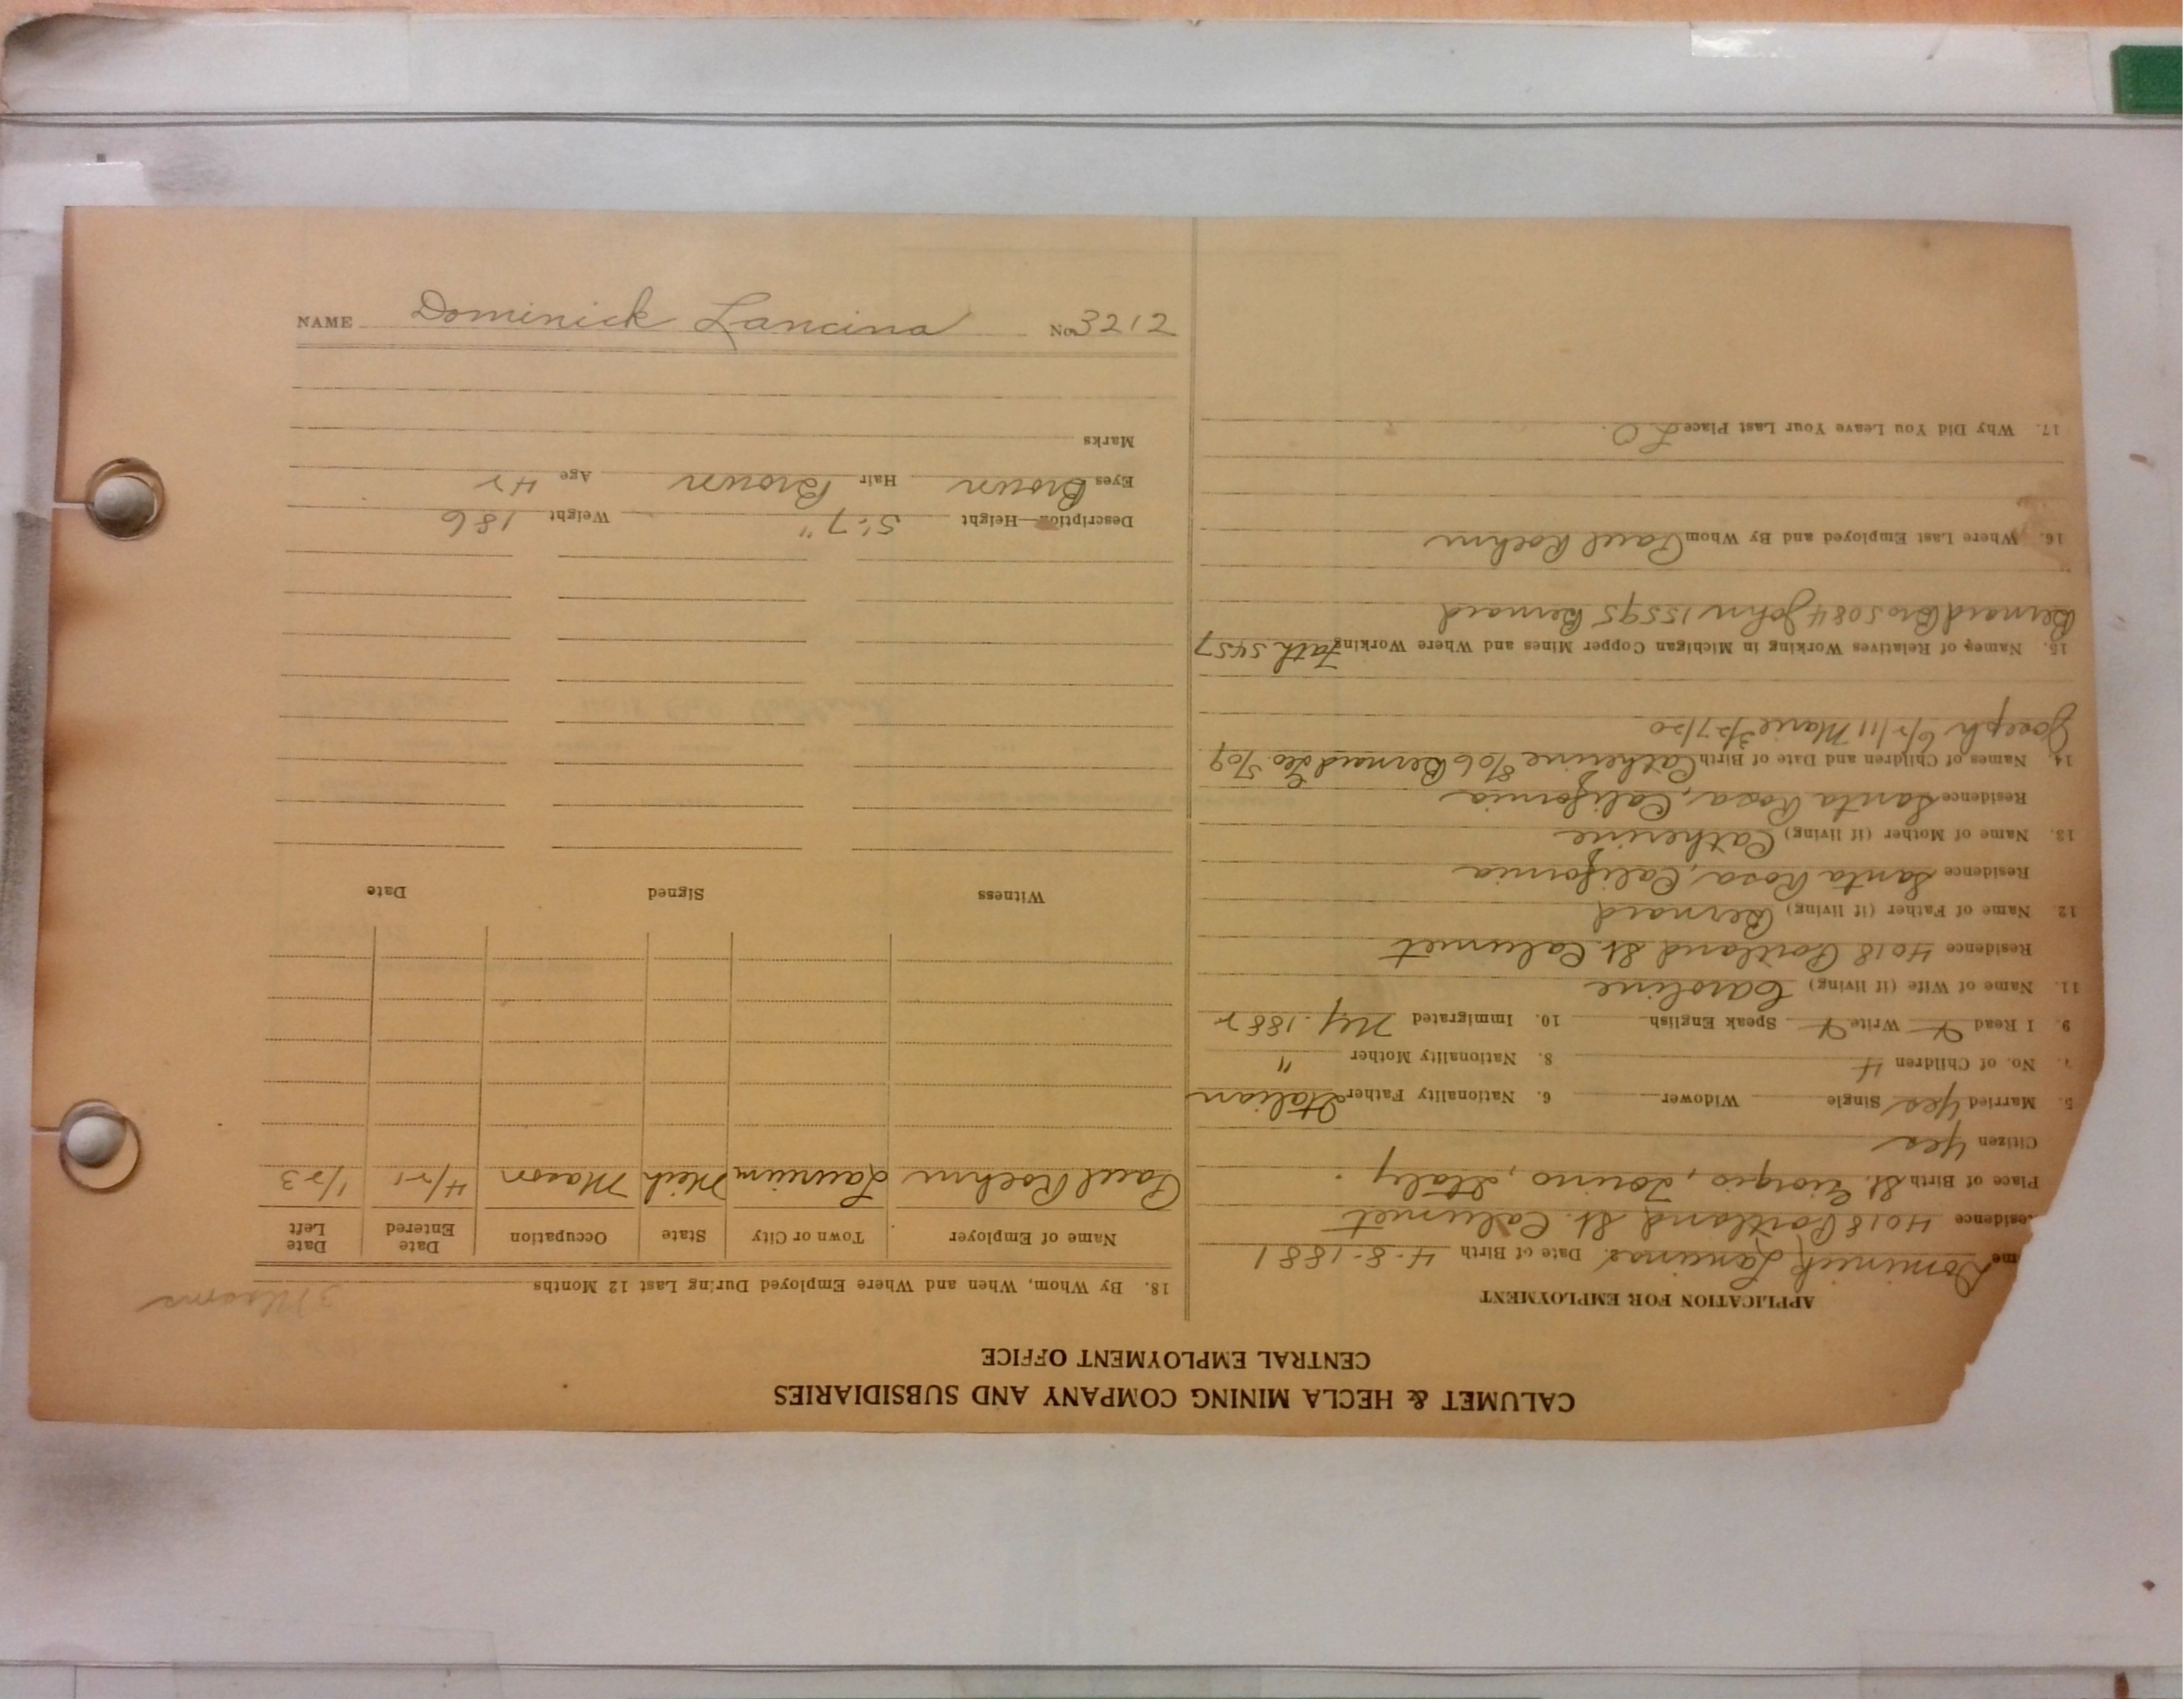 CALUMET & HECLA MINING COMPANY AND SUBSIDIARIES
CENTRAL EMPLOYMENT OFFICE
APPLICATION FOR EMPLOYMENT
me Dominick Lancina Date of Birth 4-8-1881
Residence 4018 Portland St. Calumet
Place of Birth St. Giorgio, Torino, Italy.
Citizen Yes
5. Married Yes Single Widower 6. Nationality Father Italian
7. No. of Children 4 8. Nationality Mother "
9. I Read Write Speak English 10. Immigrated 1882
11. Name of Wife (if living) Caroline
Residence 4018 Portland St. Calumet
12. Name of Father (if living) Bernard
Residence Santa Rosa, California
13. Name of Mother (if living) Catherine
Residence Santa Rosa, California
14. Names of Children and Date of Birth Catherine 8/06 Bernard Leo 5/09
Joseph 6/2/11 Marie 3/27/20
15. Names of Relatives Working in Michigan Copper Mines and Where Working Fath 5457
Bernard Bro 5084 John 15595 Bernard
16. Where Last Employed and By Whom Paul Roehm
17. Why Did You Leave Your Last Place L O.
18. By Whom, When and Where Employed During Last 12 Months
Name of Employer Town or City State Occupation Date Entered Date Left
Paul Roehm Laurium Mich Mason 4/21 1/23
Witness Signed Date
Description—Height 5'.7" Weight 186
Eyes Brown Hair Brown Age 42
Marks
NAME Dominick Lancina No. 3212